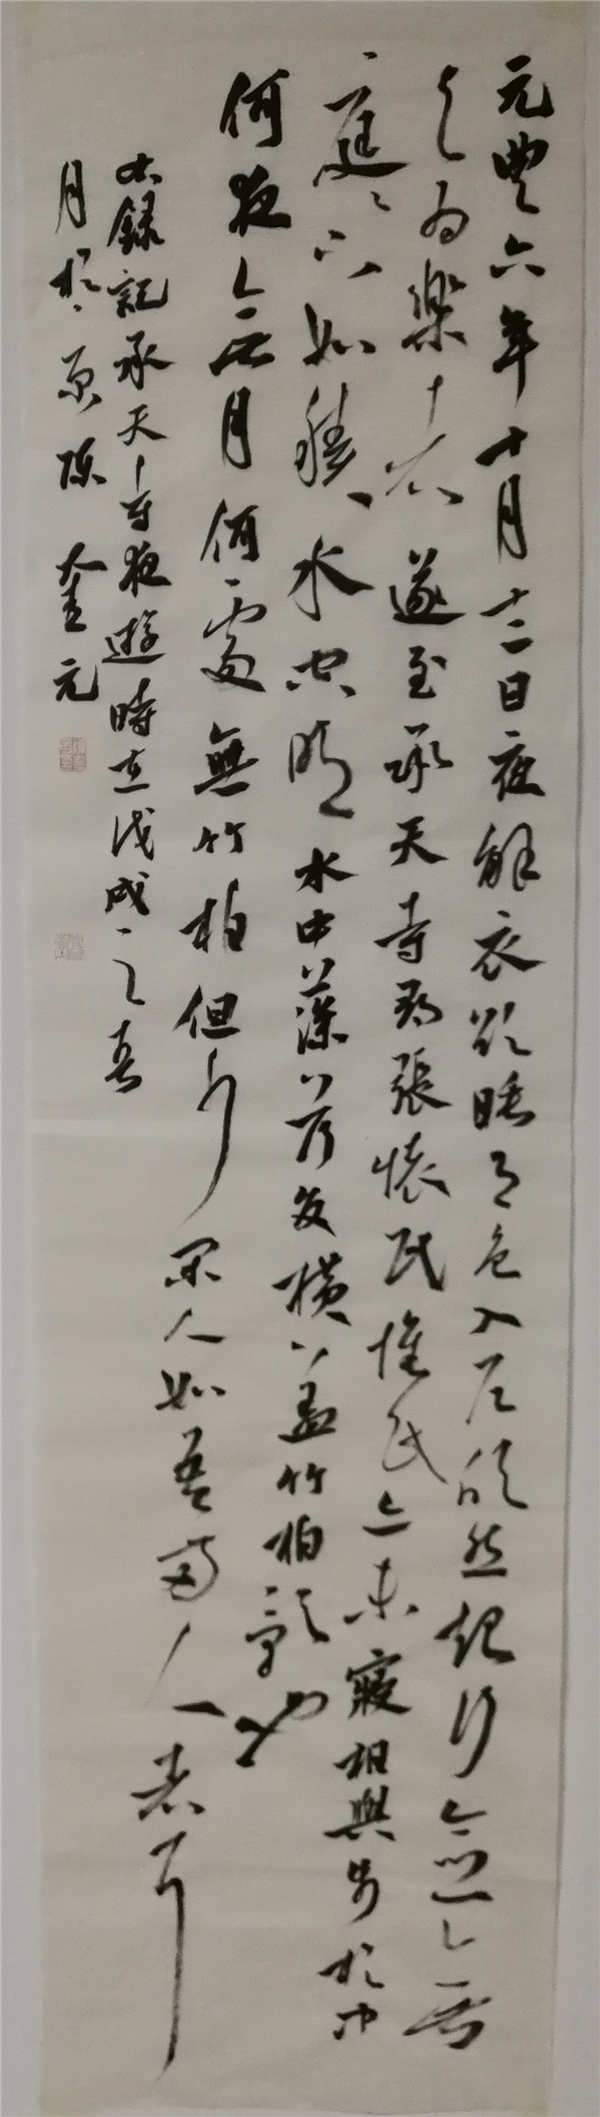 元豐六年十月十二日夜解衣欲睡月色入户欣然起行念無
与为樂者遂至承天寺尋張懷民懷民亦未寢相與步於中
庭〻下如積水空明水中藻荇交橫蓋竹柏影也
何夜無月何處無竹柏但少閑人如吾兩人者耳
右錄記承天寺夜遊時在戊戌之春
月於京陈奎元